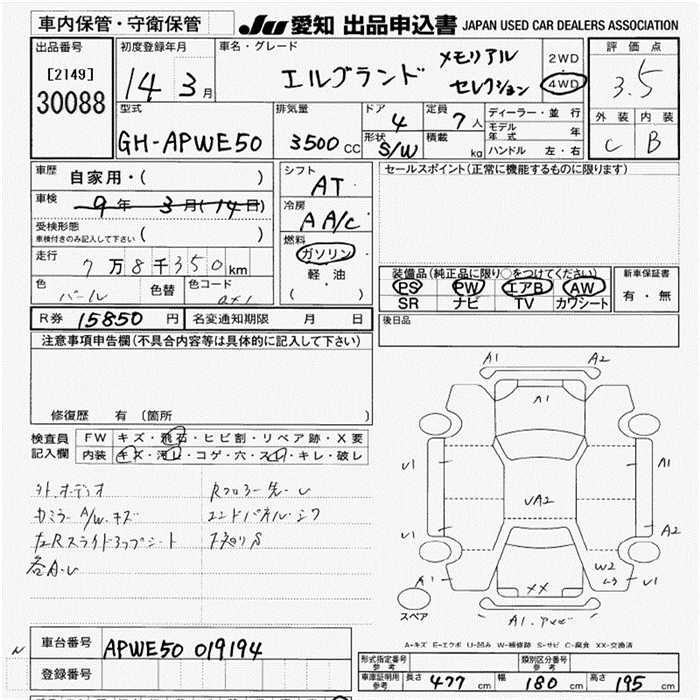 車内保管・守衛保管
JU 愛知 出品申込書 JAPAN USED CAR DEALERS ASSOCIATION
出品番号 初度登録年月 車名・グレード 評価点
[2149] 14 3月 エルグランド メモリアル セレクション 2WD・4WD 3.5
30088
型式 排気量 ドア 定員 ディーラー・並行 外装 内装
GH-APWE50 3500 CC 4 7人 モデル年式 年 C B
形状 S/W 積載 kg ハンドル 左・右
車歴 自家用・( ) シフト AT セールスポイント(正常に機能するものに限ります)
車検 9年 3月(14日) 冷房 A A/C
受検形態 車検付きのみ記入して下さい ( ) 燃料 ガソリン
走行 7万8千350km 軽油
装備品(純正品に限り○をつけてください) 新車保証書
色 パール 色替 色コード ( )
PS PW エアB AW 有・無
SR ナビ TV カワシート
R券 15850円 名変通知期限 月 日 後日品
注意事項申告欄(不具合内容等は具体的に記入して下さい)
修復歴 有(箇所
検査員記入欄 FW キズ・飛石・ヒビ割・リペア跡・X要
内装 キズ・汚レ・コゲ・穴・スレ・キレ・破レ
外.オーディオ
カミラー A/W.キズ エンドパネル・シワ
左Rスライドステップシート
各A.U
A1 A2
A1
U1 A1
UA2
U1 A2
W2
A1 XX U1
スペア
A1.
A=キズ E=エクボ U=凹み W=補修跡 S=サビ C=腐食 XX=交換済
車台番号 APWE50 019194
登録番号
形式指定番号 参考 類別区分番号 参考
車庫証明用 参考 長さ 477 cm 幅 180 cm 高さ 195 cm